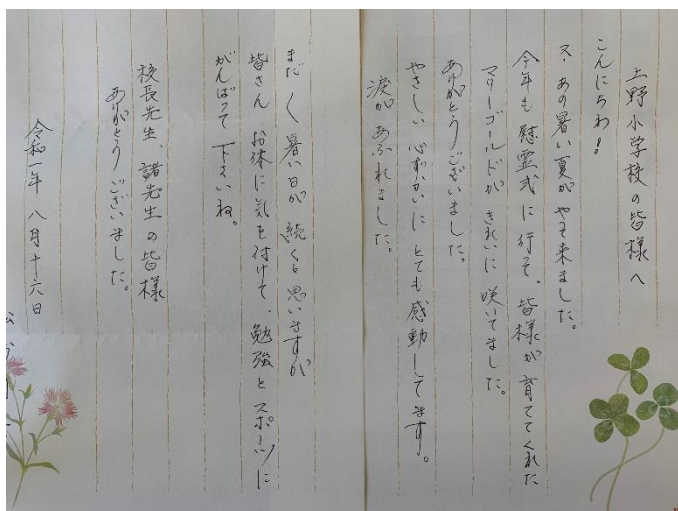 上野小学校の皆様へ
こんにちわ！
又、あの暑い夏がやって来ました。
今年も慰霊式に行って、皆様が育ててくれた
マリーゴールドがきれいに咲いてました。
ありがとうございました。
やさしい心ずかいにとても感動してます。
涙があふれました。
まだ〱暑い日が続くと思いますが
皆さんお体に気を付けて、勉強とスポーツに
がんばって下さいね。
校長先生、諸先生の皆様
ありがとうございました。
令和一年八月十六日